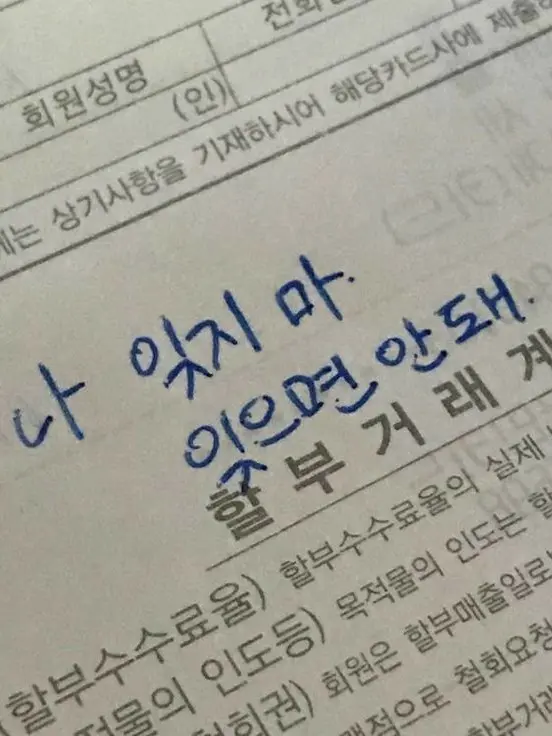 전화
회원성명
(인)
에는 상기사항을 기재하시어 해당카드사에 제출
나 잊지 마.
잊으면 안돼.
할 부 거 래 계
(할부수수료율) 할부수수료율의 실제
목적물의 인도등) 목적물의 인도는 할
철회권) 회원은 할부매출일로
적으로 철회요청
할부거래